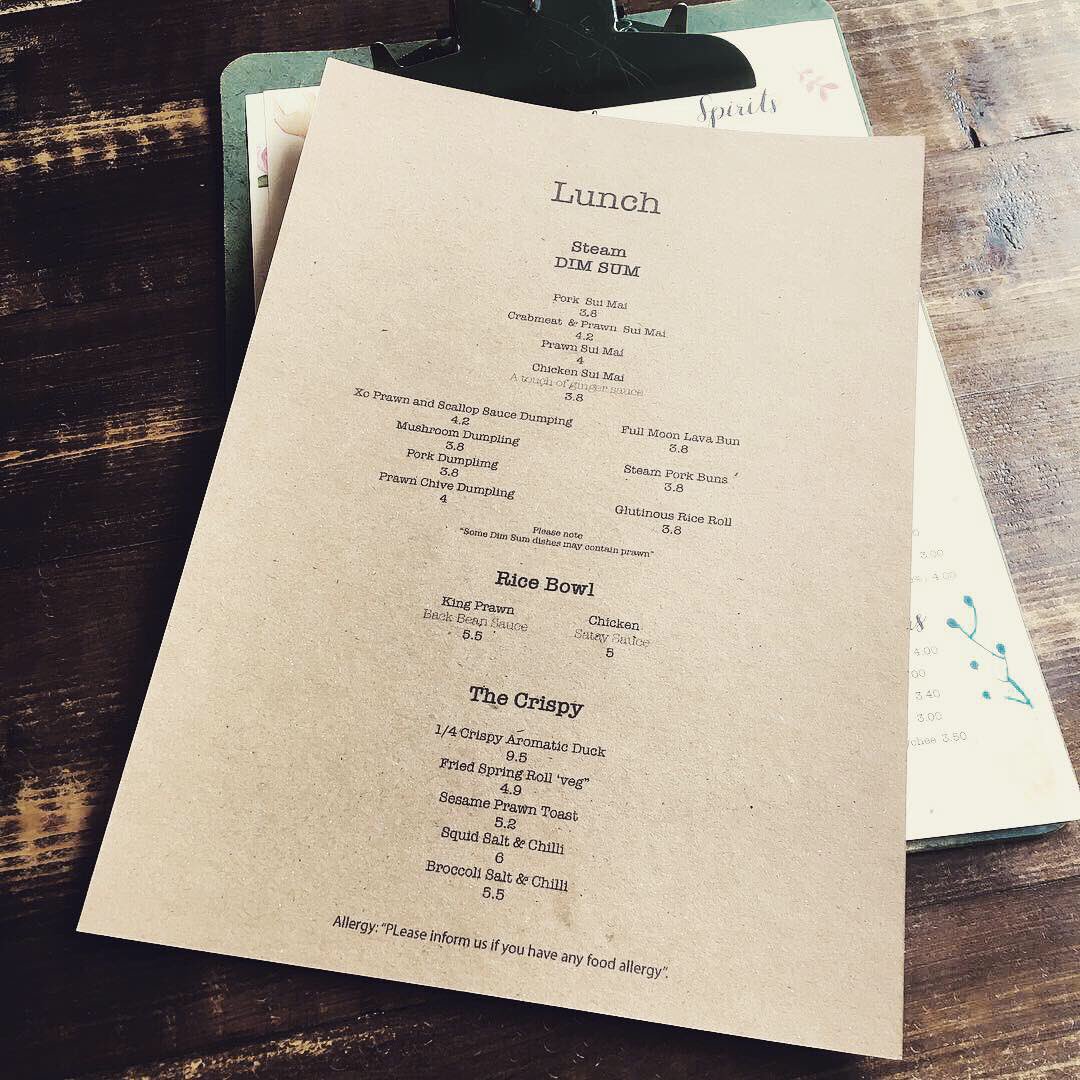 Spirits
Lunch
Steam
DIM SUM
Pork Sui Mai
3.8
Crabmeat & Prawn Sui Mai
4.2
Prawn Sui Mai
4
Chicken Sui Mai
A touch of ginger sauce
3.8
Xo Prawn and Scallop Sauce Dumping
4.2
Mushroom Dumpling
3.8
Pork Dumplimg
3.8
Prawn Chive Dumpling
4
Full Moon Lava Bun
3.8
Steam Pork Buns
3.8
Glutinous Rice Roll
3.8
Please note
"Some Dim Sum dishes may contain prawn"
Rice Bowl
King Prawn
Back Bean Sauce
5.5
Chicken
Satay Sauce
5
The Crispy
1/4 Crispy Aromatic Duck
9.5
Fried Spring Roll 'veg"
4.9
Sesame Prawn Toast
5.2
Squid Salt & Chilli
6
Broccoli Salt & Chilli
5.5
Allergy: "PLease inform us if you have any food allergy".
3.00
4.00
4.00
3.40
3.00
3.50